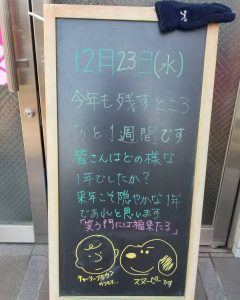 12月23日(水)
今年も残すところ
あと1週間です
皆さんはどの様な
1年でしたか?
来年こそ穏やかな1年
であれと思います
「笑う門には福来たる」
チャーリーブラウン
スヌーピーです